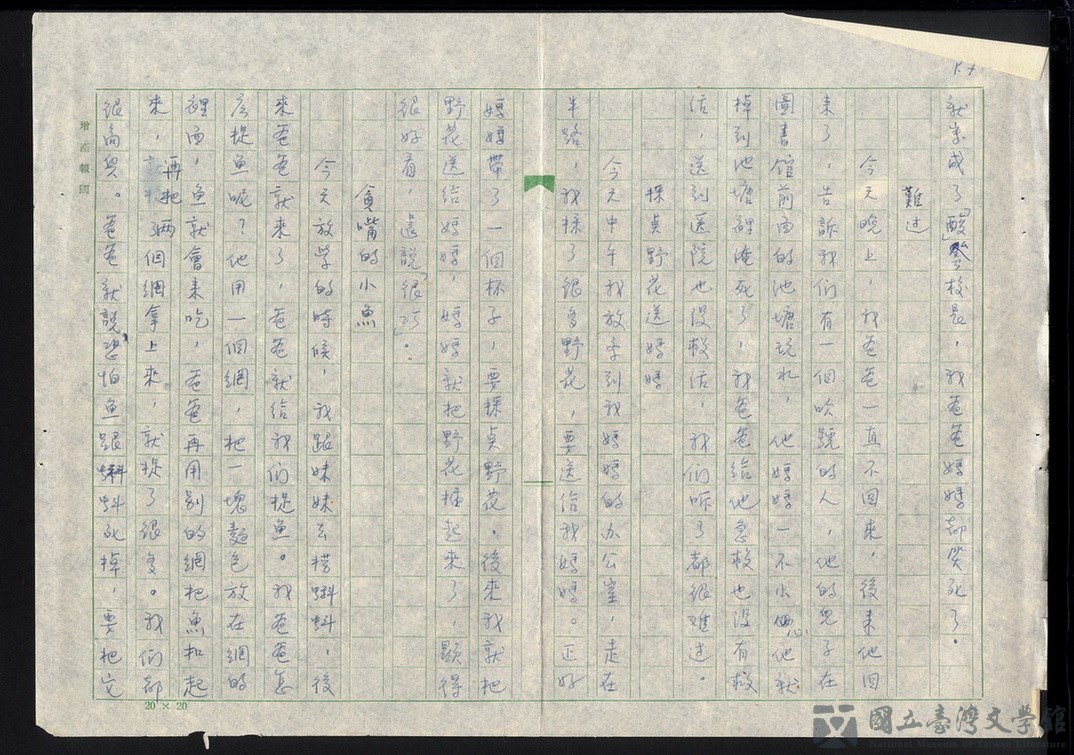 就变成了「酸餐校長」,我爸爸媽媽都笑死了。
難过
今天晚上,我爸爸一直不回来,後来他回
来了,告訴我们有一個吹號的人,他的兒子在
圖書馆前面的池塘玩水,他媽媽一不小心他就
掉到池塘裡淹死了,我爸爸給他急救也没有救
活,送到医院也没救活,我们听了都很难过。
採貞野花送媽媽
今天中午我放学到我媽媽的办公室,走在
半路,我採了很多野花,要送给我媽媽。正好
媽媽帶了一個杯子,要採貞野花。後来我就把
野花送给媽媽,媽媽就把野花種起来了,顯得
很好看,還說「很巧」。
貪嘴的小魚
今天放学的時候,我跟妹妹去撈蝌蚪,後
来爸爸就来了,爸爸就给我们捉魚。我爸爸怎
広捉魚呢?他用一個網,把一塊麵包放在網的
裡面,魚就會来吃,爸爸再用别的網把魚扣起
来,再把兩個網拿上来,就捉了很多。我们都
很高兴。爸爸就說恐怕魚跟蝌蚪死掉,要把它
增蓮報國
20×20
國立臺灣文学館
National Museum of Taiwan Literature